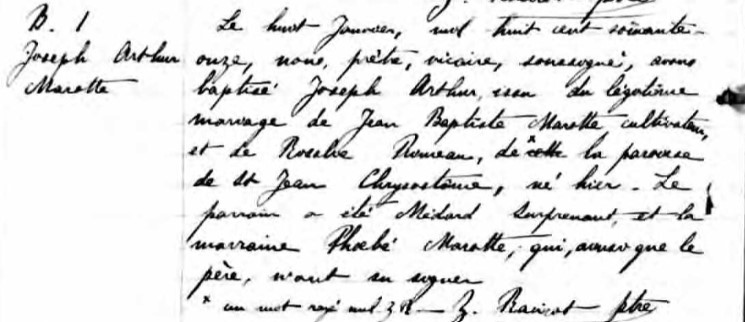 B. 1
Joseph Arthur
Marotte
Le huit Janvier, mil huit cent soixante-
onze, nous, prêtre, vicaire, soussigné, avons
baptisé Joseph Arthur, issu du légitime
mariage de Jean Baptiste Marotte cultivateur,
et de Rosalie Romeau, de * cette la paroisse
de St Jean Chrysostôme, né hier. Le
parrain a été Médard Surprenant, et la
marraine Phoebé Marotte, qui, ainsi que le
père, n'ont su signer
* un mot rayé nul Z R — Z. Racicot ptre